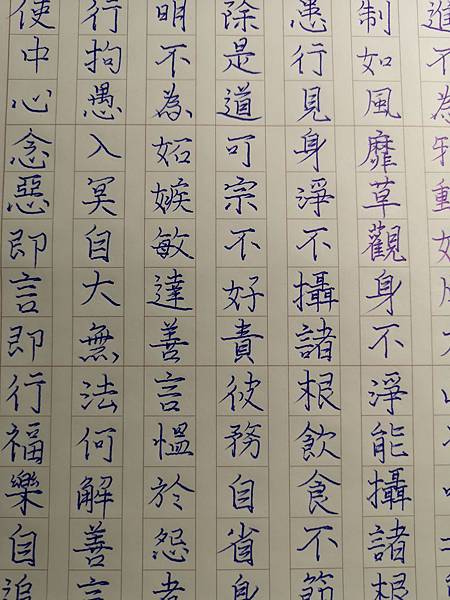 進不為邪動如
制如風靡草觀身不淨能攝諸根
患行見身淨不攝諸根飲食不節
除是道可宗不好責彼務自省身
明不為妬嫉敏達善言慍於怨者
行拘愚入冥自大無法何解善言
使中心念惡即言即行福樂自追